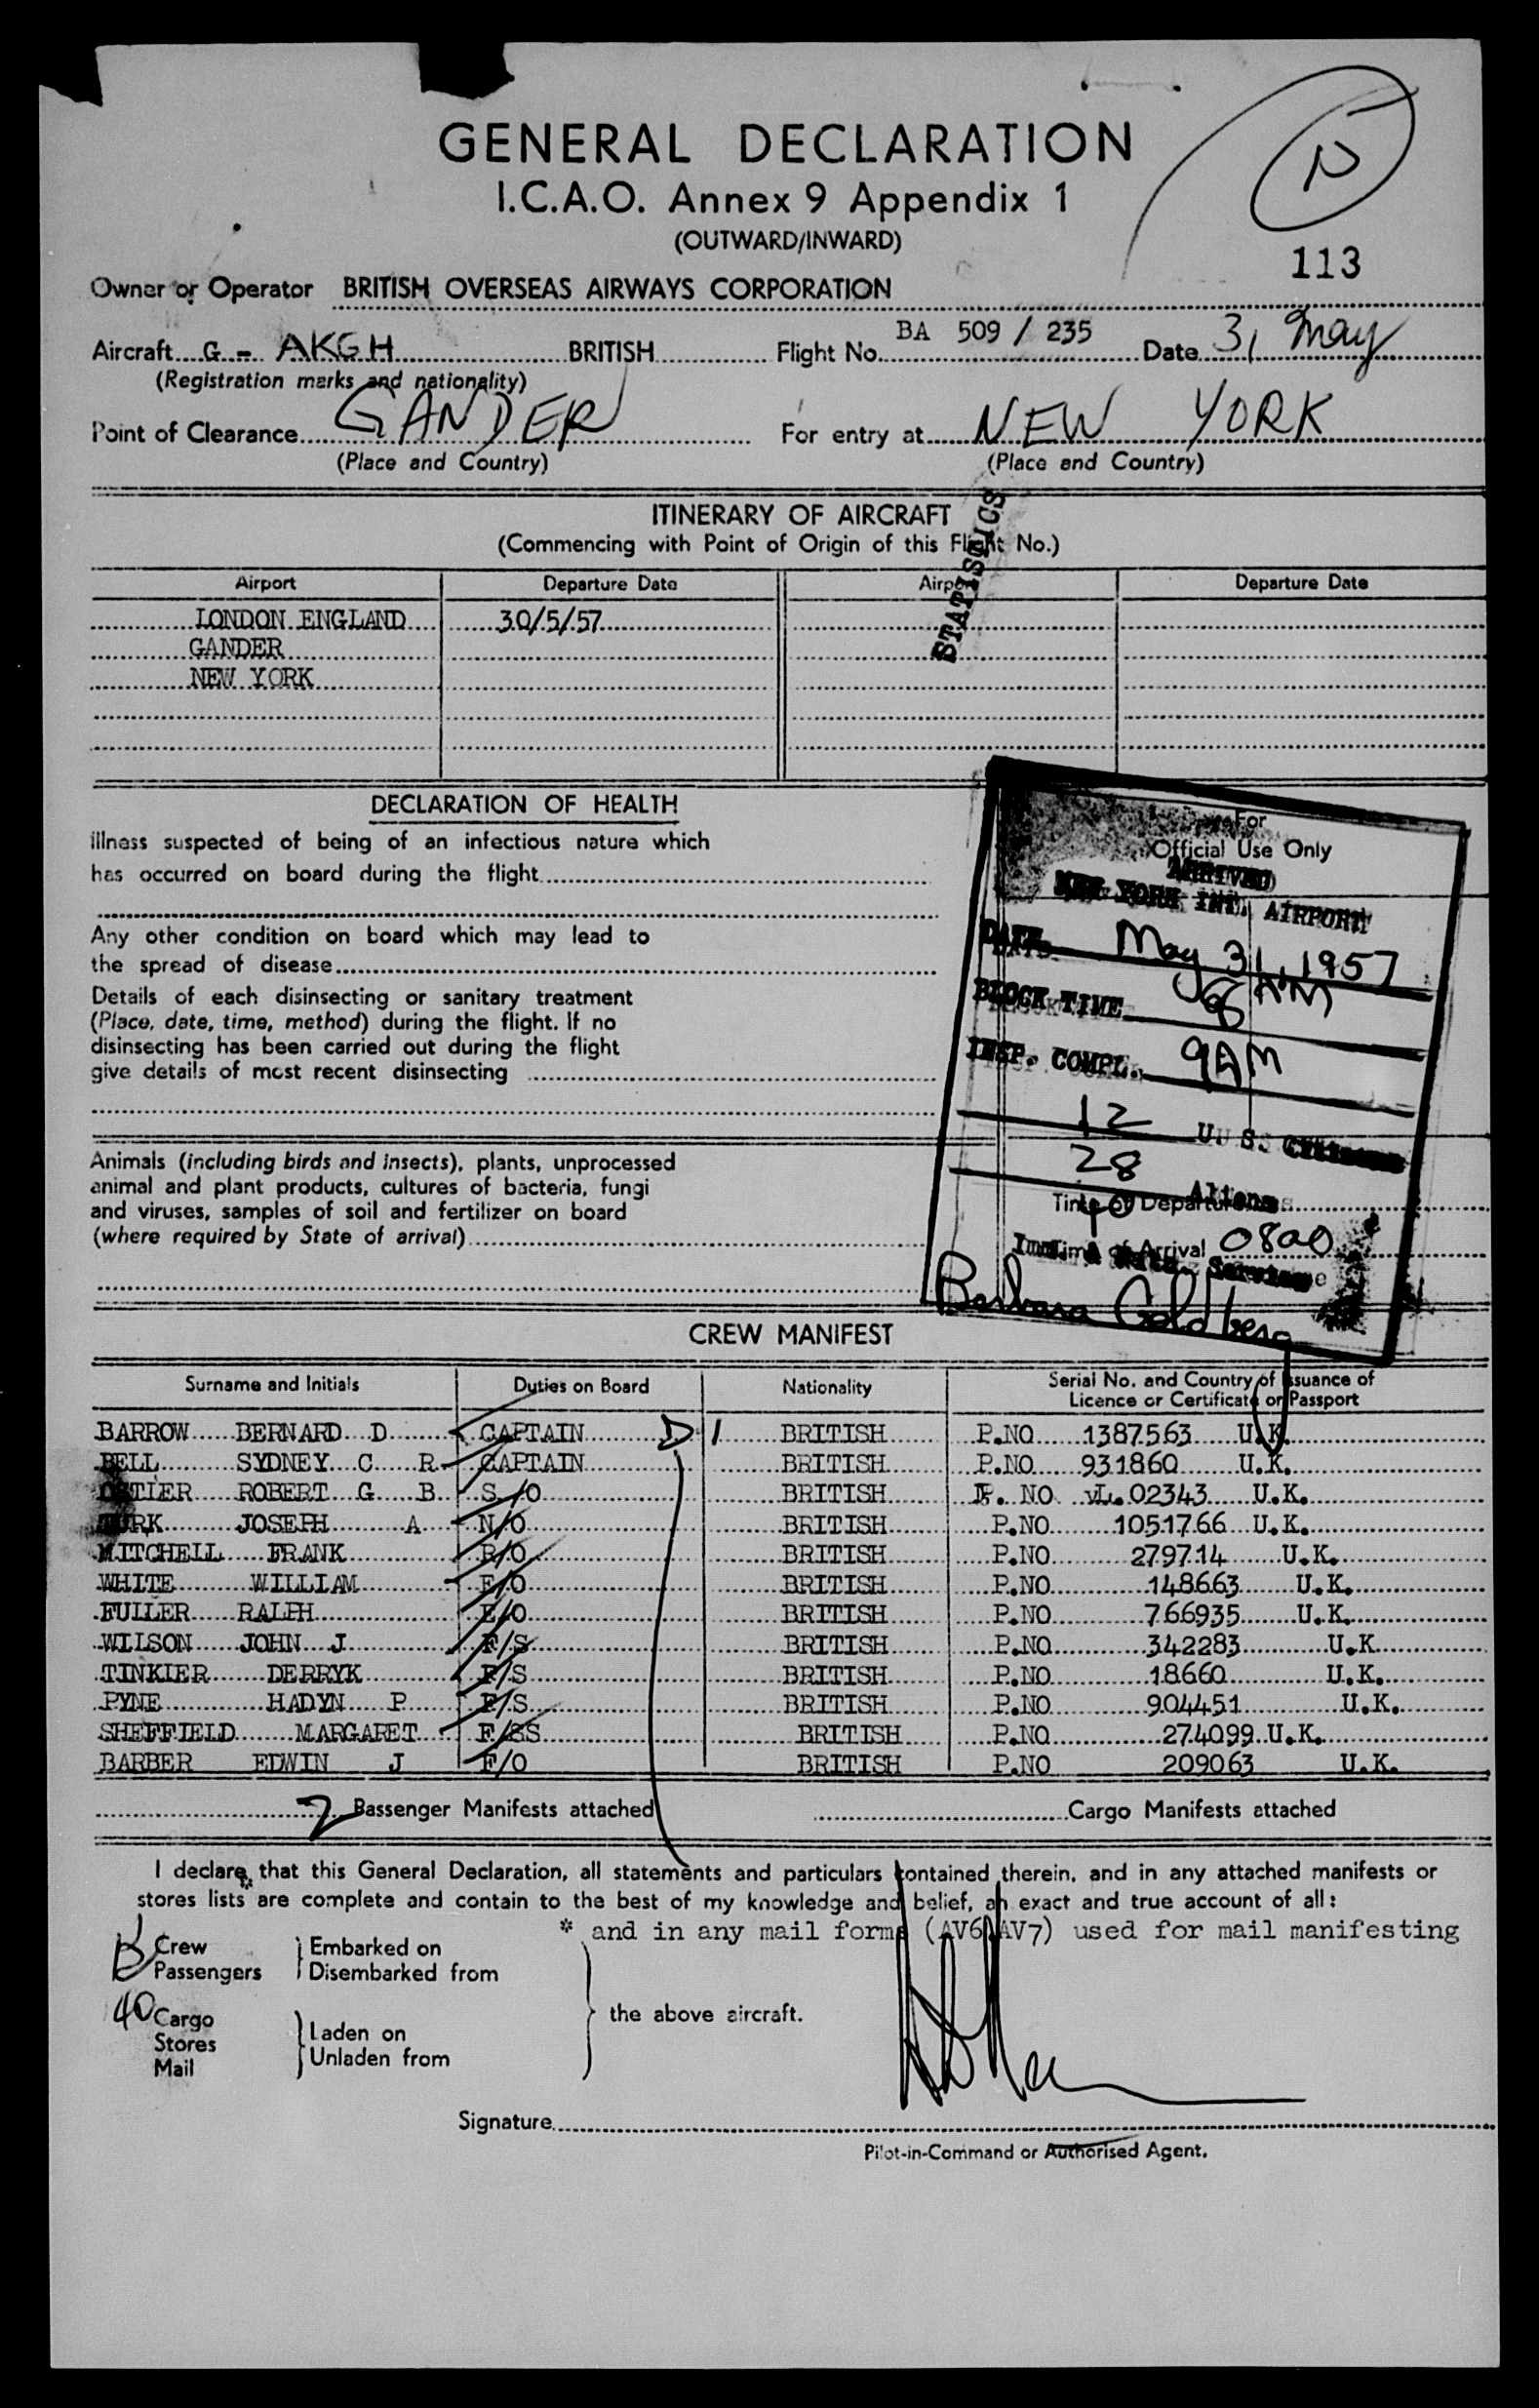 GENERAL DECLARATION
I.C.A.O. Annex 9 Appendix 1
(OUTWARD/INWARD)
113
Owner or Operator BRITISH OVERSEAS AIRWAYS CORPORATION
Aircraft G - AKGH BRITISH Flight No. BA 509 / 235 Date 31 May
(Registration marks and nationality)
Point of Clearance GANDER For entry at NEW YORK
(Place and Country) (Place and Country)
STATISTICS
ITINERARY OF AIRCRAFT
(Commencing with Point of Origin of this Flight No.)
Airport Departure Date Airport Departure Date
LONDON ENGLAND 30/5/57
GANDER
NEW YORK
DECLARATION OF HEALTH
Illness suspected of being of an infectious nature which
has occurred on board during the flight
Any other condition on board which may lead to
the spread of disease
Details of each disinsecting or sanitary treatment
(Place, date, time, method) during the flight. If no
disinsecting has been carried out during the flight
give details of most recent disinsecting
Animals (including birds and insects), plants, unprocessed
animal and plant products, cultures of bacteria, fungi
and viruses, samples of soil and fertilizer on board
(where required by State of arrival)
For
Official Use Only
ARRIVED
NEW YORK INT. AIRPORT
DATE May 31, 1957
BLOCK TIME 8 AM
INSP. COMPL. 9AM
12 U. S. Citizens
28 Aliens
Time of Departure
40
Time of Arrival 0800
Imm. & Natz. Service
Barbara Goldberg
CREW MANIFEST
Surname and Initials Duties on Board Nationality Serial No. and Country of Issuance of
Licence or Certificate or Passport
BARROW BERNARD D CAPTAIN D 1 BRITISH P.NO 1387563 U.K.
BELL SYDNEY C R CAPTAIN BRITISH P.NO 931860 U.K.
OSTIER ROBERT G B S/O BRITISH P. NO 02343 U.K.
TURK JOSEPH A N/O BRITISH P.NO 1051766 U.K.
MITCHELL FRANK R/O BRITISH P.NO 279714 U.K.
WHITE WILLIAM E/O BRITISH P.NO 148663 U.K.
FULLER RALPH E/O BRITISH P.NO 766935 U.K.
WILSON JOHN J F/S BRITISH P.NO 342283 U.K
TINKIER DERRYK F/S BRITISH P.NO 18660 U.K.
PYNE HADYN P F/S BRITISH P.NO 904451 U.K.
SHEFFIELD MARGARET F/SS BRITISH P.NO 274099 U.K.
BARBER EDWIN J F/O BRITISH P.NO 209063 U.K.
2 Passenger Manifests attached Cargo Manifests attached
I declare * that this General Declaration, all statements and particulars contained therein, and in any attached manifests or
stores lists are complete and contain to the best of my knowledge and belief, an exact and true account of all:
* and in any mail forms (AV6 AV7) used for mail manifesting
Crew Embarked on
Passengers Disembarked from
the above aircraft.
40 Cargo
Stores Laden on
Mail Unladen from
Signature
Pilot-in-Command or Authorised Agent.